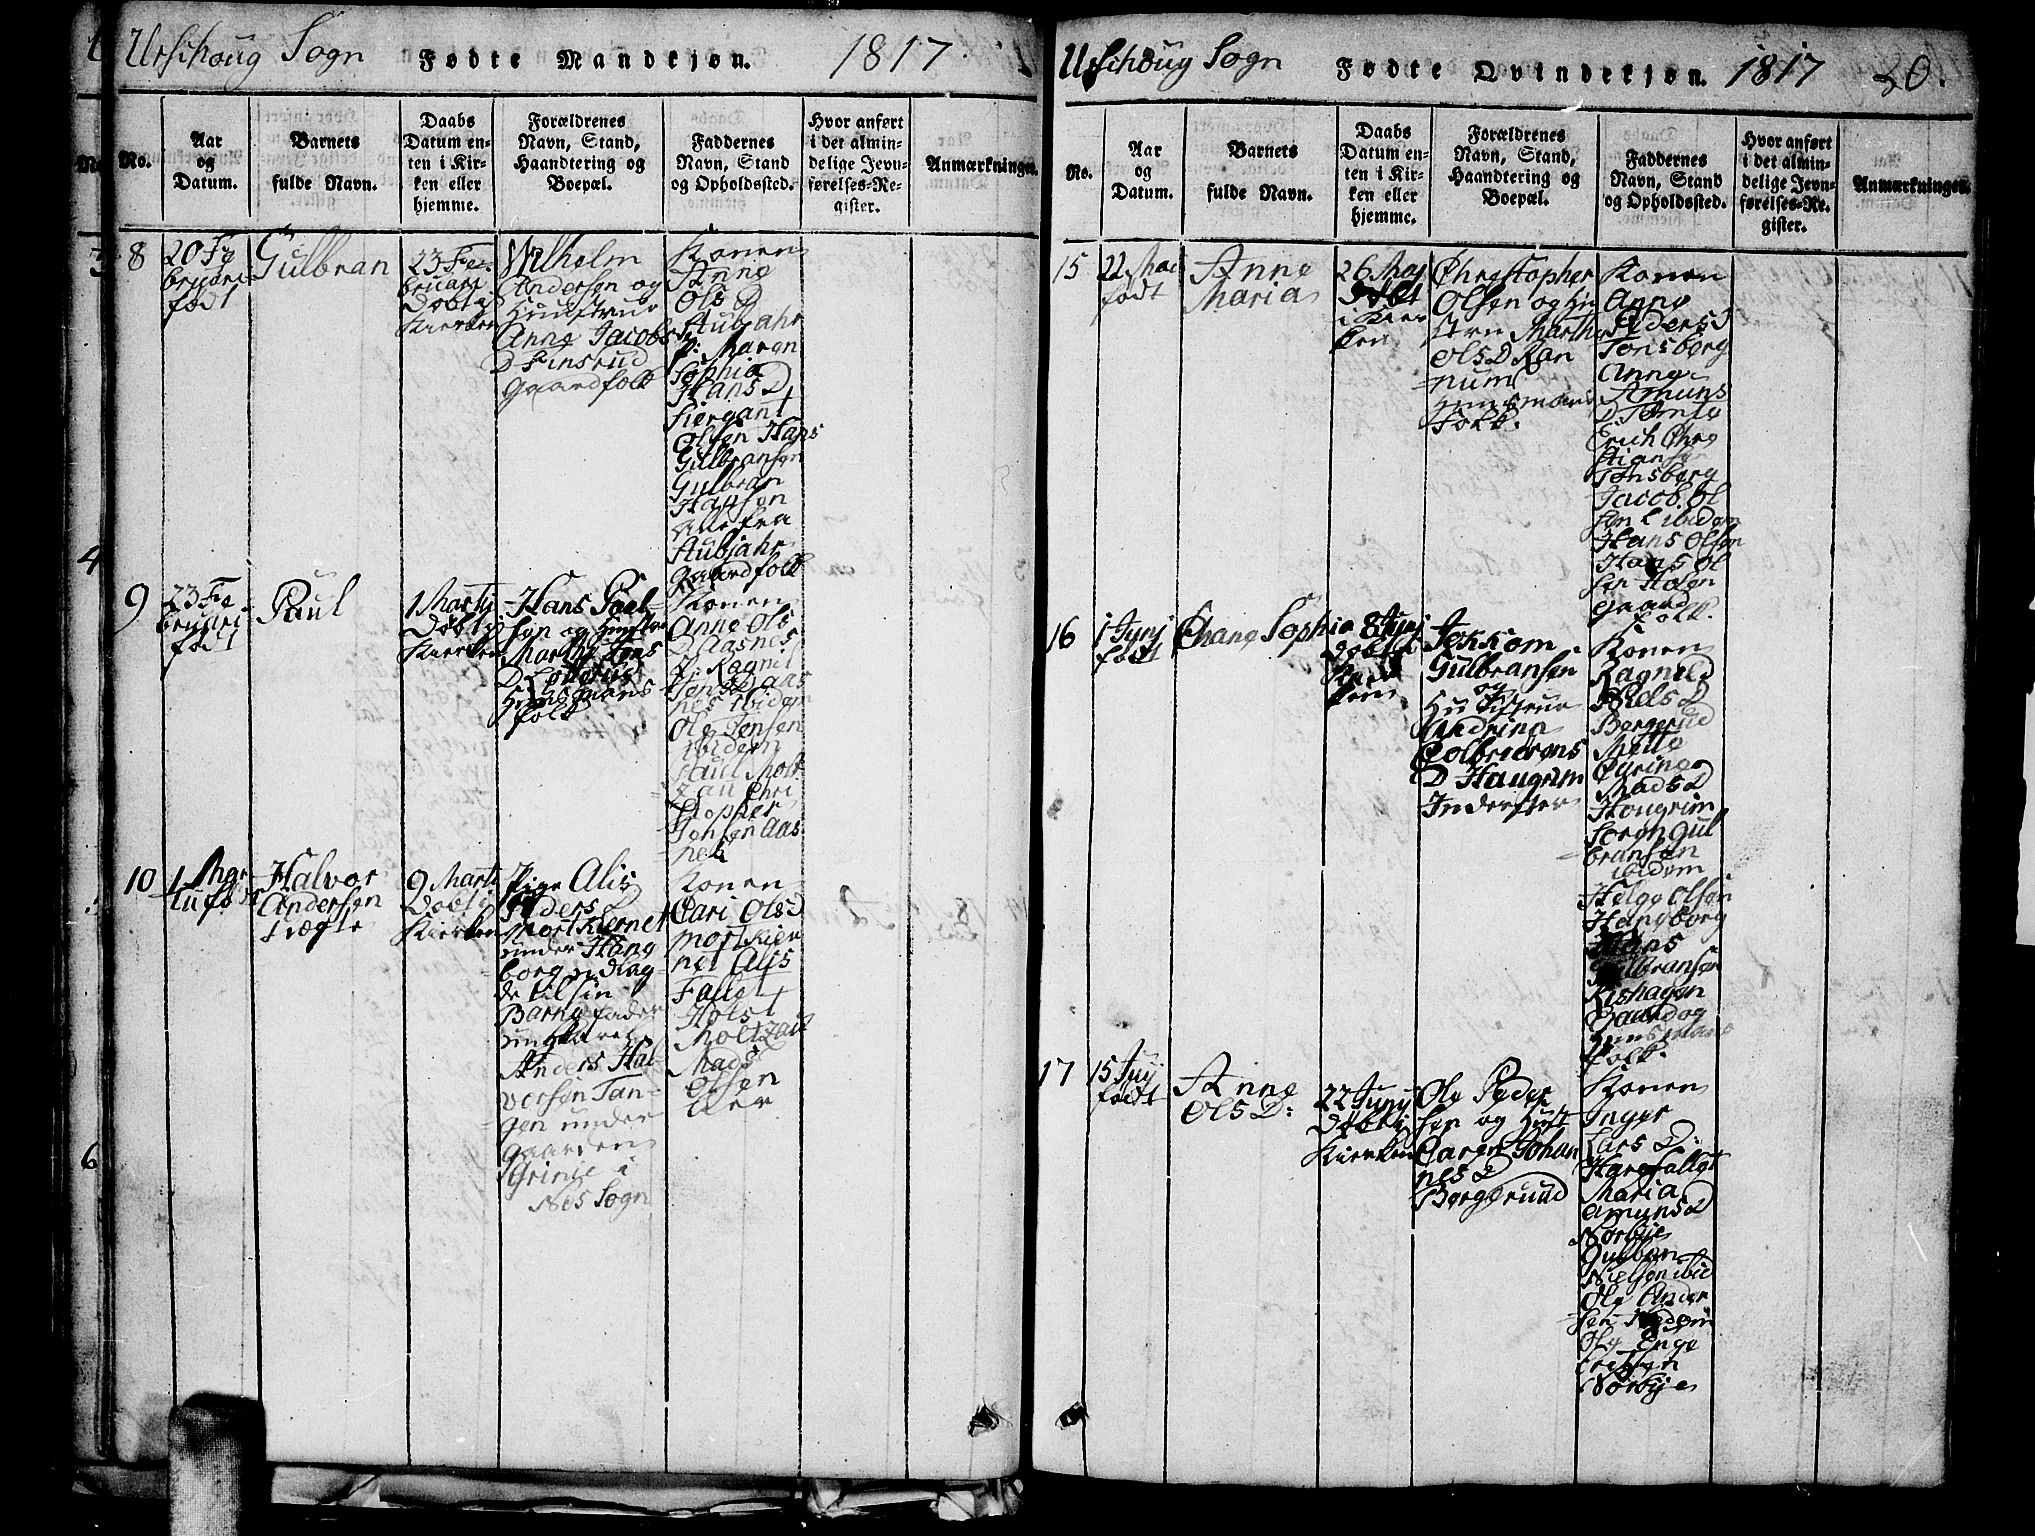 Urschoug Sogn Fødte Mandkjøn. 1817.
No.
Aar
og
Datum.
Barnets
fulde Navn.
Daabs
Datum en-
ten i Kir-
ken eller
hjemme.
Forældrenes
Navn, Stand,
Haandtering og
Boepæl.
Faddernes
Navn, Stand
og Opholdssted.
Hvor anført
i det almin-
delige Jevn-
førelses-Re-
gister.
Anmærkninger.
8
20 Fe
bruari
født
Gulbran
23 Fe-
bruari
Døbt i
Kierken
Wilhelm
Andersen og
Huustrue
Anne Jacobs
D Finsrud
Gaardfolk
Konen
Anne
Ols D
Aubjahr
P: Maren
Sophia
Hans D
Siergant
Olsen Hans
Gulbransen
Gulbran
Hansen
alle fra
Aubjahr
gaardfolk
9
23 Fe
bruari
født
Paul
1 Martij
Døbt i
Kierken
Hans Poul-
sen og Hustru
Marthe Jens
D
Huusmans
folk
Konen
Anne Ols
D Aasnes
P: Ragnel
Jens D Aas
nes ibidem
Ole Jensen
ibidem
Paul Molt
zau Chri
stopher
Jensen Aas-
nes
10
1 Mar-
tij født
Halvor
Andersen
Uægte
9 Marti
Døbt i
Kierken
Pige Alis
Peders D
Mortkiernet
under Haug
borg udlag-
de til sin
Barne fader
ungkarel
Anders Hal-
versen Tan-
gen under
gaarden
Grinie i
Nes Sogn
Konen
Cari Ols D
Mortkier
net Alis
Fallet
Hols
Moltzau
Mads
Olsen
Lier
4
6
Urschoug Sogn Fødte Qvindekjøn. 1817 30.
No.
Aar
og
Datum.
Barnets
fulde Navn.
Daabs
Datum en-
ten i Kir-
ken eller
hjemme.
Forældrenes
Navn, Stand,
Haandtering og
Boepæl.
Faddernes
Navn, Stand
og Opholdssted.
Hvor anført
i det almin-
delige Jevn-
førelses-Re-
gister.
Anmærkninger.
15
22 Maj
født
Anne
Maria
26 Maj
Døbt
i Kier
ken
Christopher
Olsen og Hu
stru Marthe
Ols D Ran
num
Huusmans
folk.
Konen
Anne
Peders D
Tønsberg
Anne
Amuns
D Tømte
Erich Chri
stiansen
Tønsberg
Jacob Ol
sen ibidem
Hans Olsen
Hans Ol
sen Holen
gaard
folk.
16
1 Junj
født
Chane Sophia
8 Junj
Døbt i
Kier
ken
Jokkom
Gulbransen
og
Hustrue
Andrina
Colbiørens
D Haugrim
Inderster
Konen
Ragnild
Niels D
Bergerud
Mette
Cyrine
Mads D
Hougrim
Søren Gul
bransen
ibidem
Helge Olsen
Haugborg
Hans
Gulbransen
Rishagen
Gaard og
Huusmans
folk.
17
15 Junj
født
Anne
Ols D:
22 Junj
Døbt i
Kierken
Ole Peder
sen og Hust
Caren Johan
nes D
Bergeruud
Konen
Inger
Lars D:
Harefallet
Maria
Amuns D
Norbye
Gulbran
Nielsen ibid
Ole Ander
sen ibidem
Ole Enge
bretsen
Norbye